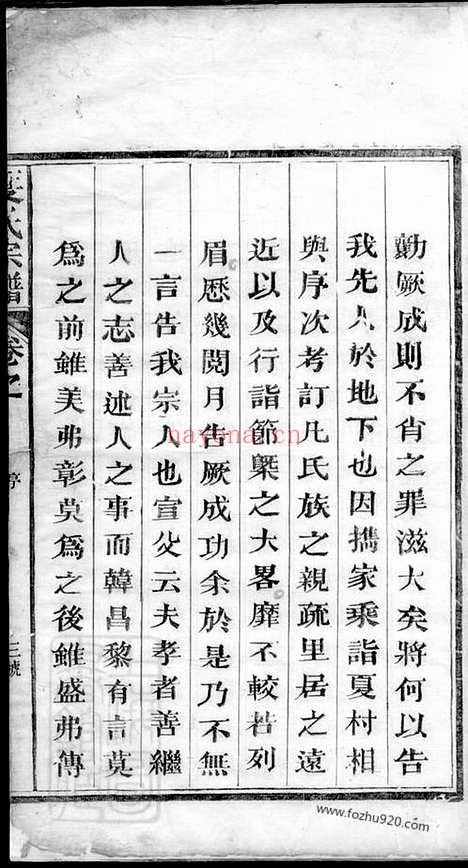 勷厥成則不肖之罪滋大矣將何以告
我先人於地下也因擕家乘詣夏村相
與序次考訂凡氏族之親疏里居之遠
近以及行詣節槩之大畧靡不較若列
眉歷幾閱月告厥成功余於是乃不無
一言告我宗人也宣父云夫孝者善繼
人之志善述人之事而韓昌黎有言莫
爲之前雖美弗彰莫爲之後雖盛弗傳
氏宗譜
卷之
序
三號
nayona.cn
www.fozhu920.com